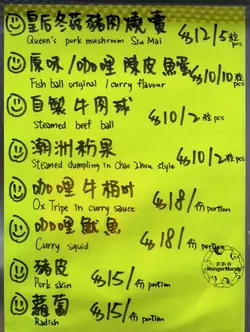 皇后冬菇豬肉燒賣 $12/5粒
Queen's pork mushroom Siu Mai pcs
原味/咖哩 陳皮魚蛋 $10/10粒
Fish ball original / curry flavour pcs
自製牛肉球 $10/2粒
Steamed beef ball pcs
潮洲粉果 $10/2粒
Steamed dumpling in Chao Zhou style pcs
咖哩牛栢叶 $18/份
Ox Tripe in curry sauce portion
咖哩魷魚 $18/份
Curry squid portion
豬皮 $15/份
Pork skin portion
蘿蔔 $15/份
Radish portion
HungerMarks